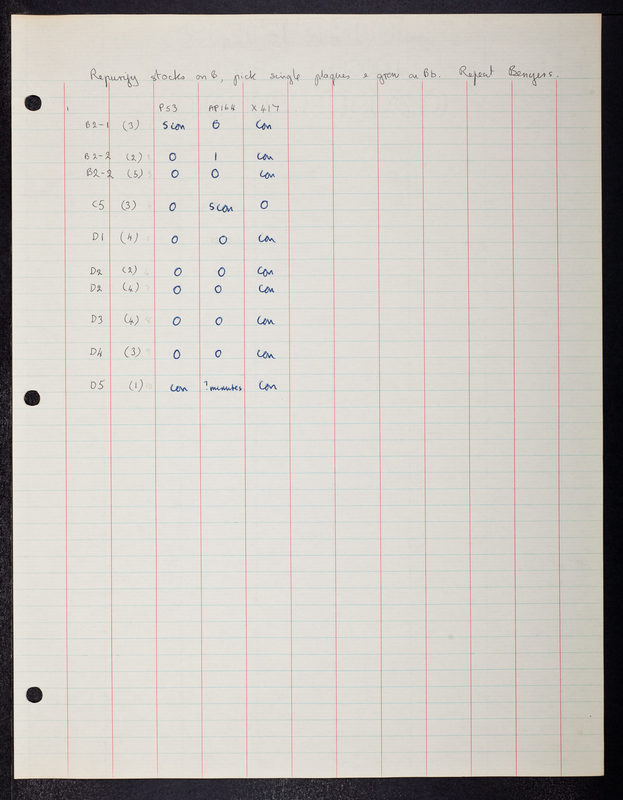 Repurify stocks on B, pick single plaques & grow on Bb. Repeat Benzers.
P53 AP164 X417
B2-1 (3) S con 0 Con
B2-2 (2) 0 1 con
B2-2 (5) 0 0 con
C5 (3) 0 S con 0
D1 (4) 0 0 Con
D2 (2) 0 0 Con
D2 (4) 0 0 Con
D3 (4) 0 0 Con
D4 (3) 0 0 Con
D5 (1) con ? minutes Con